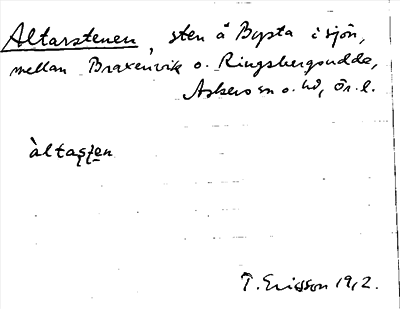 Altarstenen, sten å Bysta i sjön,
mellan Braxenvik o. Ringsbergsudde,
Askers sn o. hd, Ör. l.
àltasten
T. Ericsson 1912.